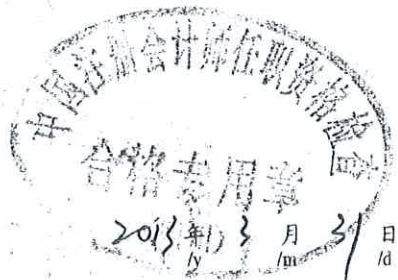 中国注册会计师任职资格检查
合格专用章
2013 年 3 月 31 日
/y /m /d